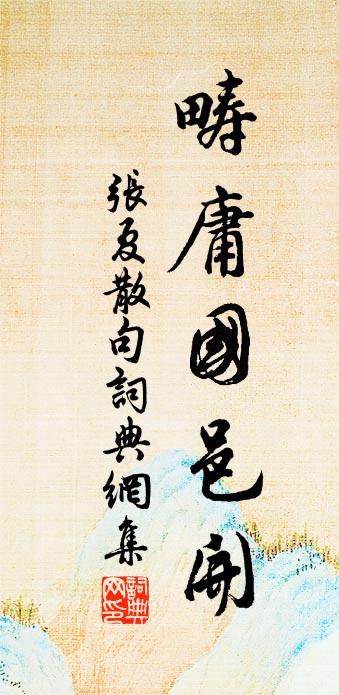 疇庸國邑開
張夏散句詞典網集
詞典
网印